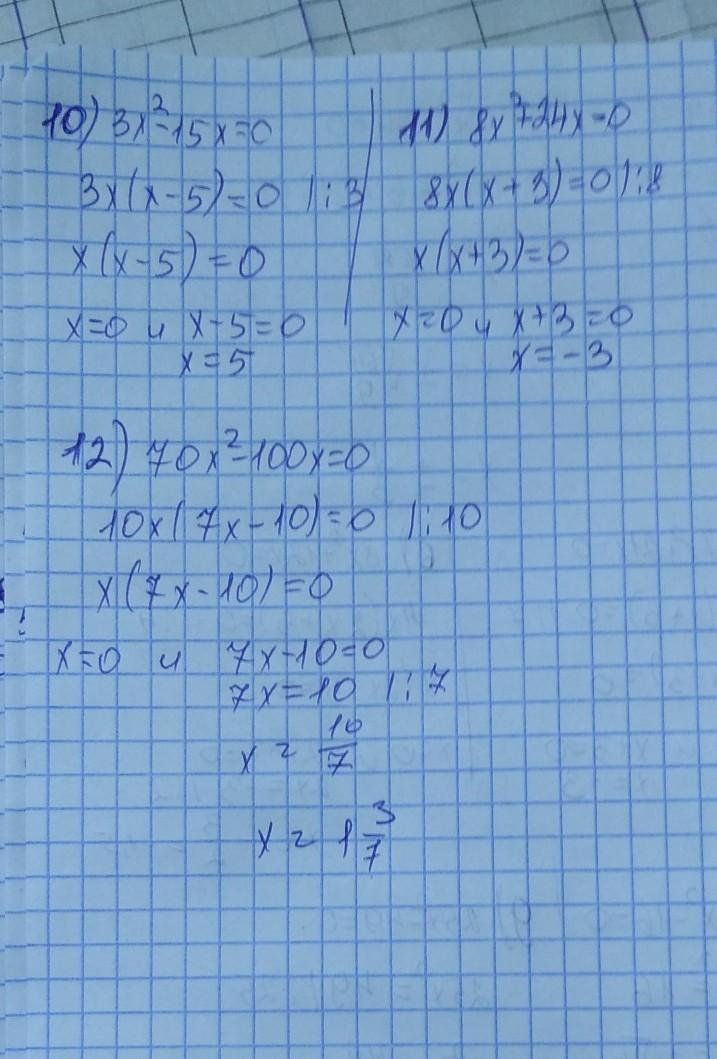 10) 3x²-15x=0
3x(x-5)=0 |:3
x(x-5)=0
x=0 и x-5=0
x=5
11) 8x²+24x=0
8x(x+3)=0 |:8
x(x+3)=0
x=0 и x+3=0
x=-3
12) 70x²-100x=0
10x(7x-10)=0 |:10
x(7x-10)=0
x=0 и 7x-10=0
7x=10 |:7
x = 10/7
x = 1 3/7